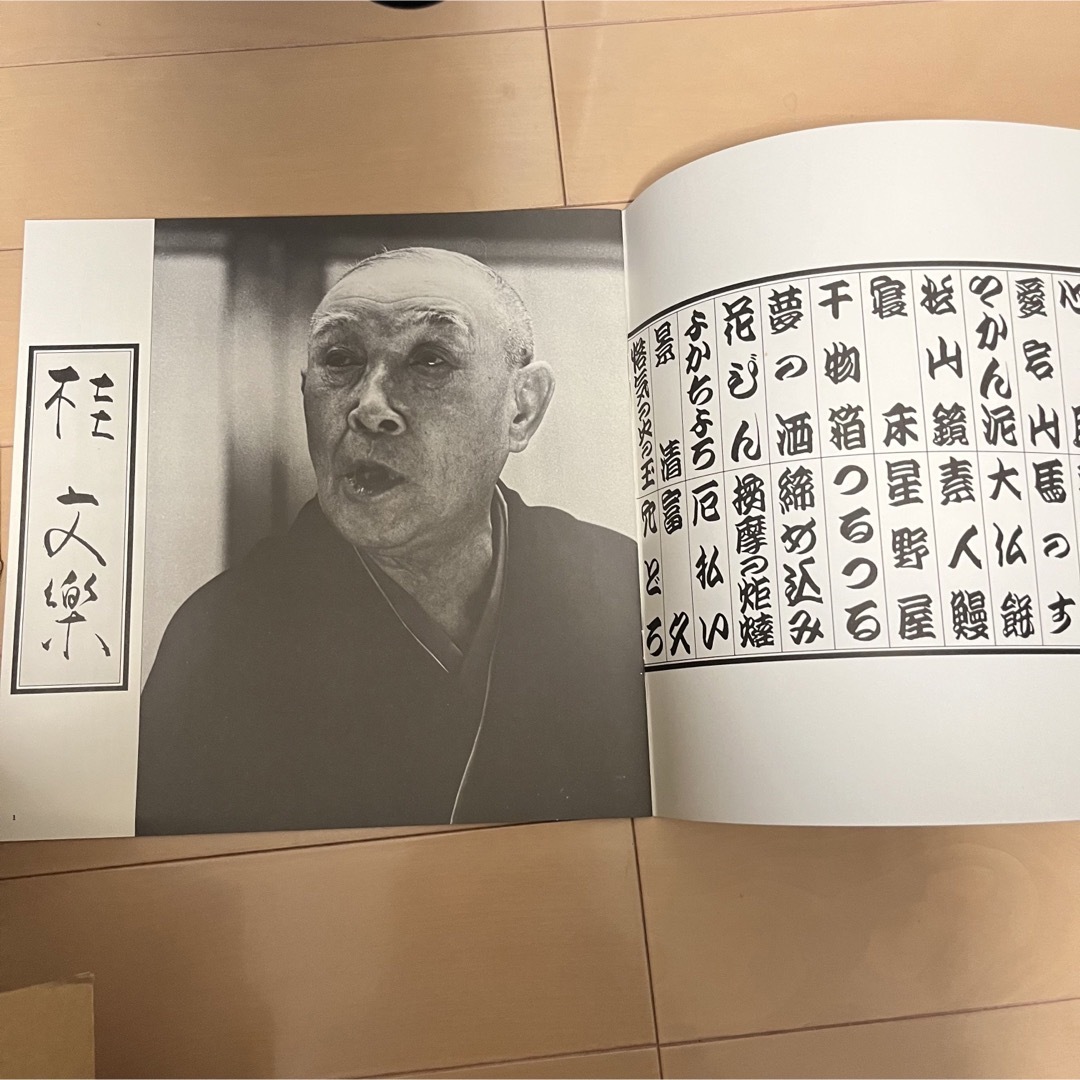 桂文樂
愛宕山
やかん泥
松山鏡
寝床
干物箱
夢の酒
花びん
よかちょろ
景清
悋気の火の玉
馬のす
大仏餅
素人鰻
星野屋
つるつる
締め込み
按摩の炬燵
厄払い
富久
穴どろ
1